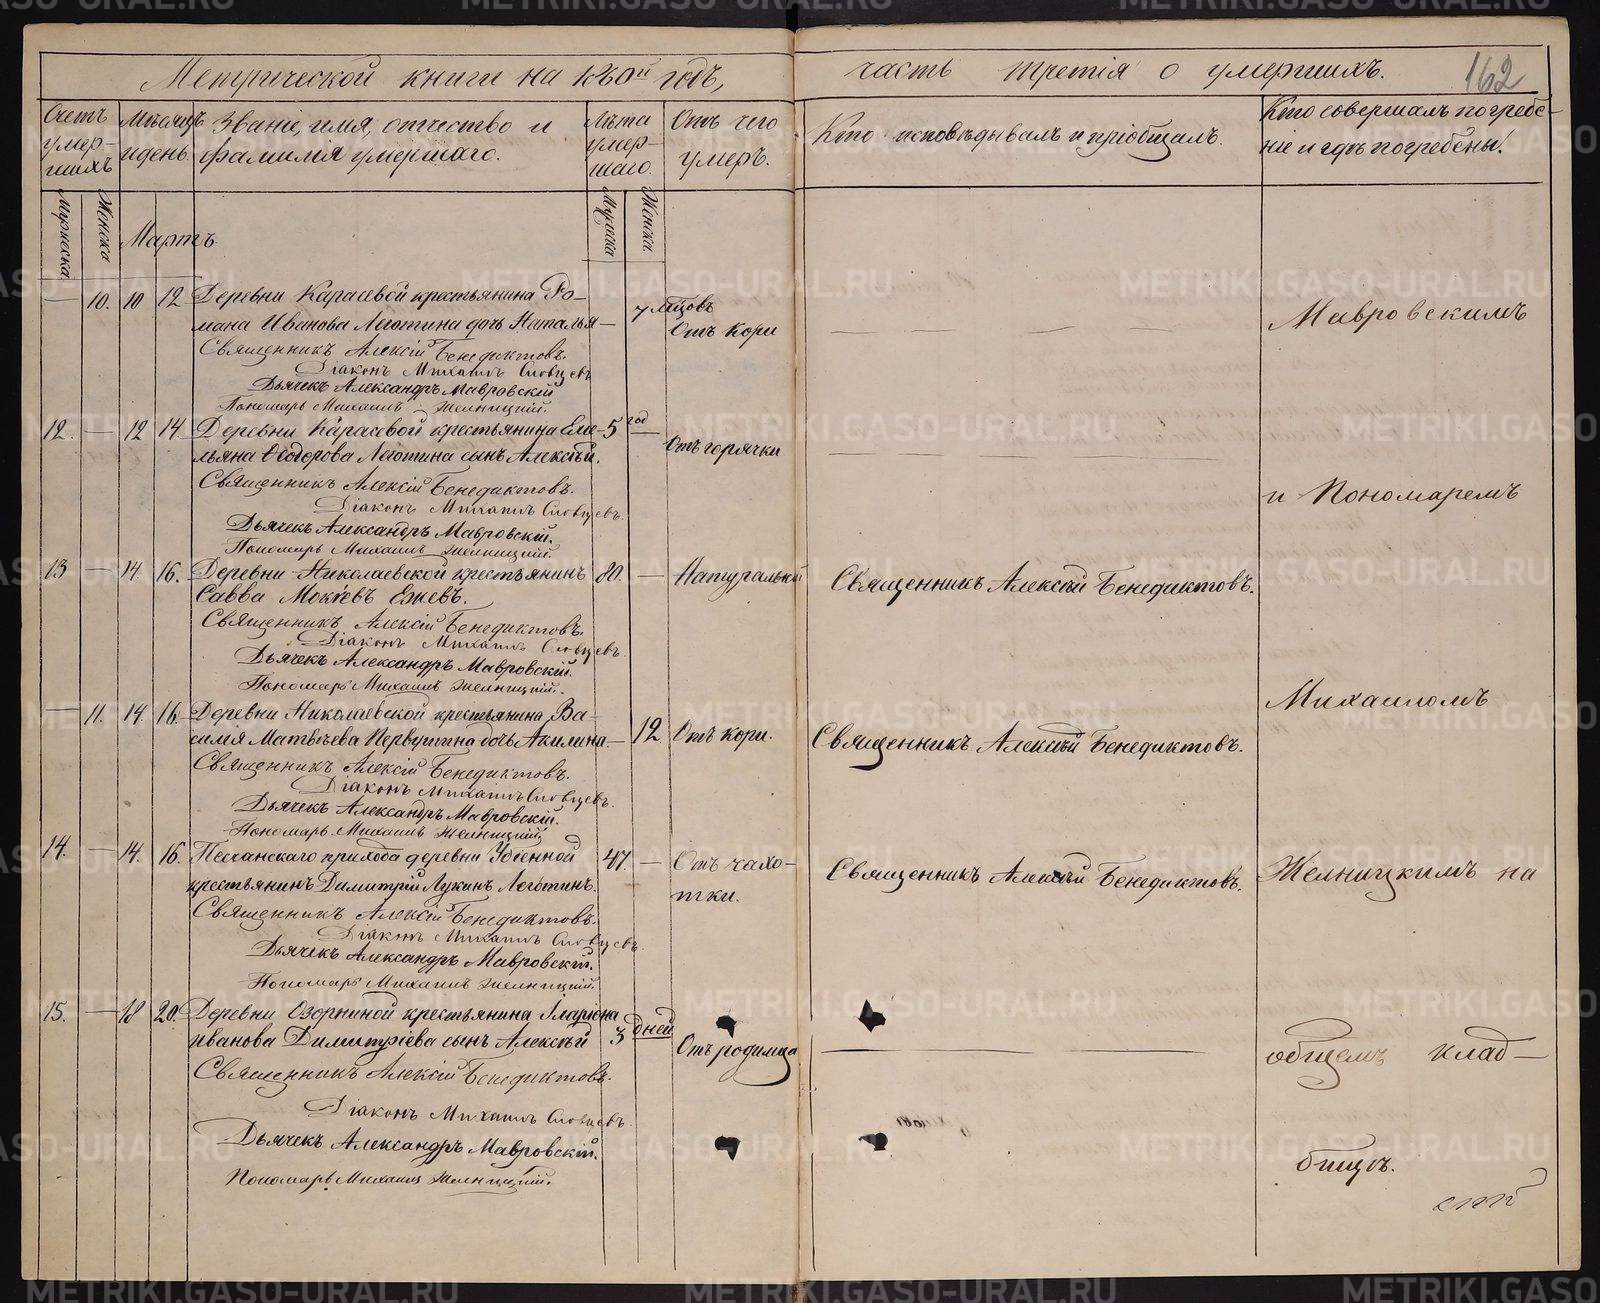 Метрической книги на 1880й годъ,
часть третія о умершихъ.
162
Счетъ умер-
шихъ
Мѣсяцъ
и день.
Званіе, имя, отчество и
фамилія умершаго.
Лѣта
умер-
шаго.
Отъ чего
умеръ.
Кто исповѣдывалъ и пріобщалъ.
Кто совершалъ погребе-
ніе и гдѣ погребены.
Мужеска
Женска
Мужеска
Женска
Мартъ
— 10. 10 12 Деревни Карасевой крестьянина Ро-
мана Иванова Леготина дочь Наталья —
7 мѣсяцовъ
Отъ кори
Священникъ Алексій Бенедиктовъ.
Діаконъ Михаилъ Словцевъ
Дьячекъ Александръ Мавровскій
Пономарь Михаилъ Желницкій.
Мавровскимъ
12. — 12 14 Деревни Карасевой крестьянина Еме- 5 год —
льяна Ѳеодорова Леготина сынъ Алексѣй.
Отъ горячки
Священникъ Алексій Бенедиктовъ.
Діаконъ Михаилъ Словцевъ.
Дьячекъ Александръ Мавровскій.
Пономарь Михаилъ Желницкій.
и Пономаремъ
13 — 14 16. Деревни Николаевской крестьянинъ 80. — Натуральной Священникъ Алексѣй Бенедиктовъ.
Савва Мокіевъ Ежевъ.
Священникъ Алексій Бенедиктовъ.
Діаконъ Михаилъ Словцевъ.
Дьячекъ Александръ Мавровскій.
Пономарь Михаилъ Желницкій.
Михаиломъ
— 11. 14 16 Деревни Николаевской крестьянина Ва-
силія Матвѣева Первушина дочь Акилина. — 12 Отъ кори. Священникъ Алексѣй Бенедиктовъ.
Священникъ Алексій Бенедиктовъ.
Діаконъ Михаилъ Словцевъ.
Дьячекъ Александръ Мавровскій.
Пономарь Михаилъ Желницкій.
14. — 14. 16. Песчанскаго прихода деревни Убіенной 47. — Отъ чахо-
тки.
крестьянинъ Димитрій Лукинъ Леготинъ.
Священникъ Алексѣй Бенедиктовъ.
Желницкимъ на
Священникъ Алексій Бенедиктовъ.
Діаконъ Михаилъ Словцевъ.
Дьячекъ Александръ Мавровскій.
Пономарь Михаилъ Желницкій.
15. — 18 20. Деревни Озорниной крестьянина Іларіона
Иванова Димитріева сынъ Алексѣй 3 дней
Отъ родимца
общемъ клад-
Священникъ Алексій Бенедиктовъ.
Діаконъ Михаилъ Словцевъ.
Дьячекъ Александръ Мавровскій.
Пономарь Михаилъ Желницкій.
бищѣ.
METRIKI.GASO-URAL.RU